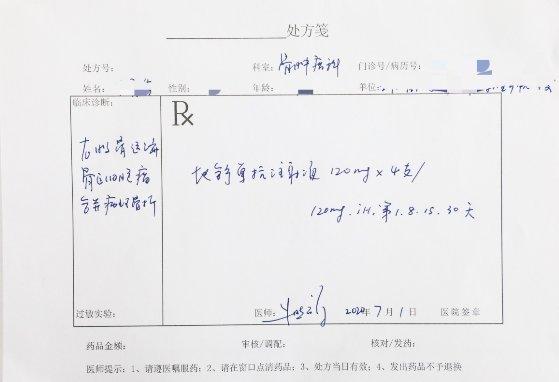 处方笺
处方号: 科室: 骨肿瘤科 门诊号/病历号:
姓名: 性别: 年龄: 单位:
临床诊断: Rx
骨巨细胞瘤
合并病理骨折
地舒单抗注射液 120mg×4支/
120mg. iH. 第1.8.15.30天
过敏实验: 医师: 2020年7月1日 医院签章
药品金额: 审核/调配: 核对/发药:
医师提示: 1、请遵医嘱服药; 2、请在窗口点清药品; 3、处方当日有效; 4、发出药品不予退换